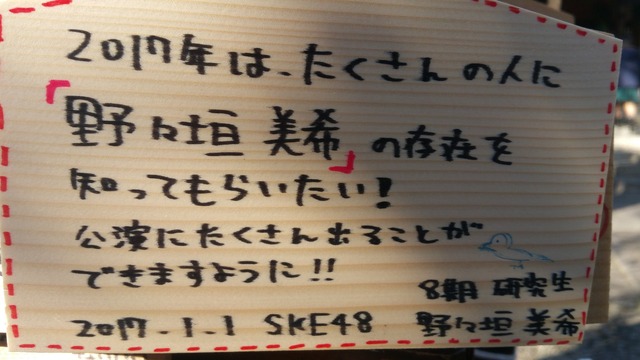 2017年は、たくさんの人に
「野々垣美希」の存在を
知ってもらいたい!
公演にたくさん出ることが
できますように!!
8期研究生
2017.1.1 SKE48 野々垣美希